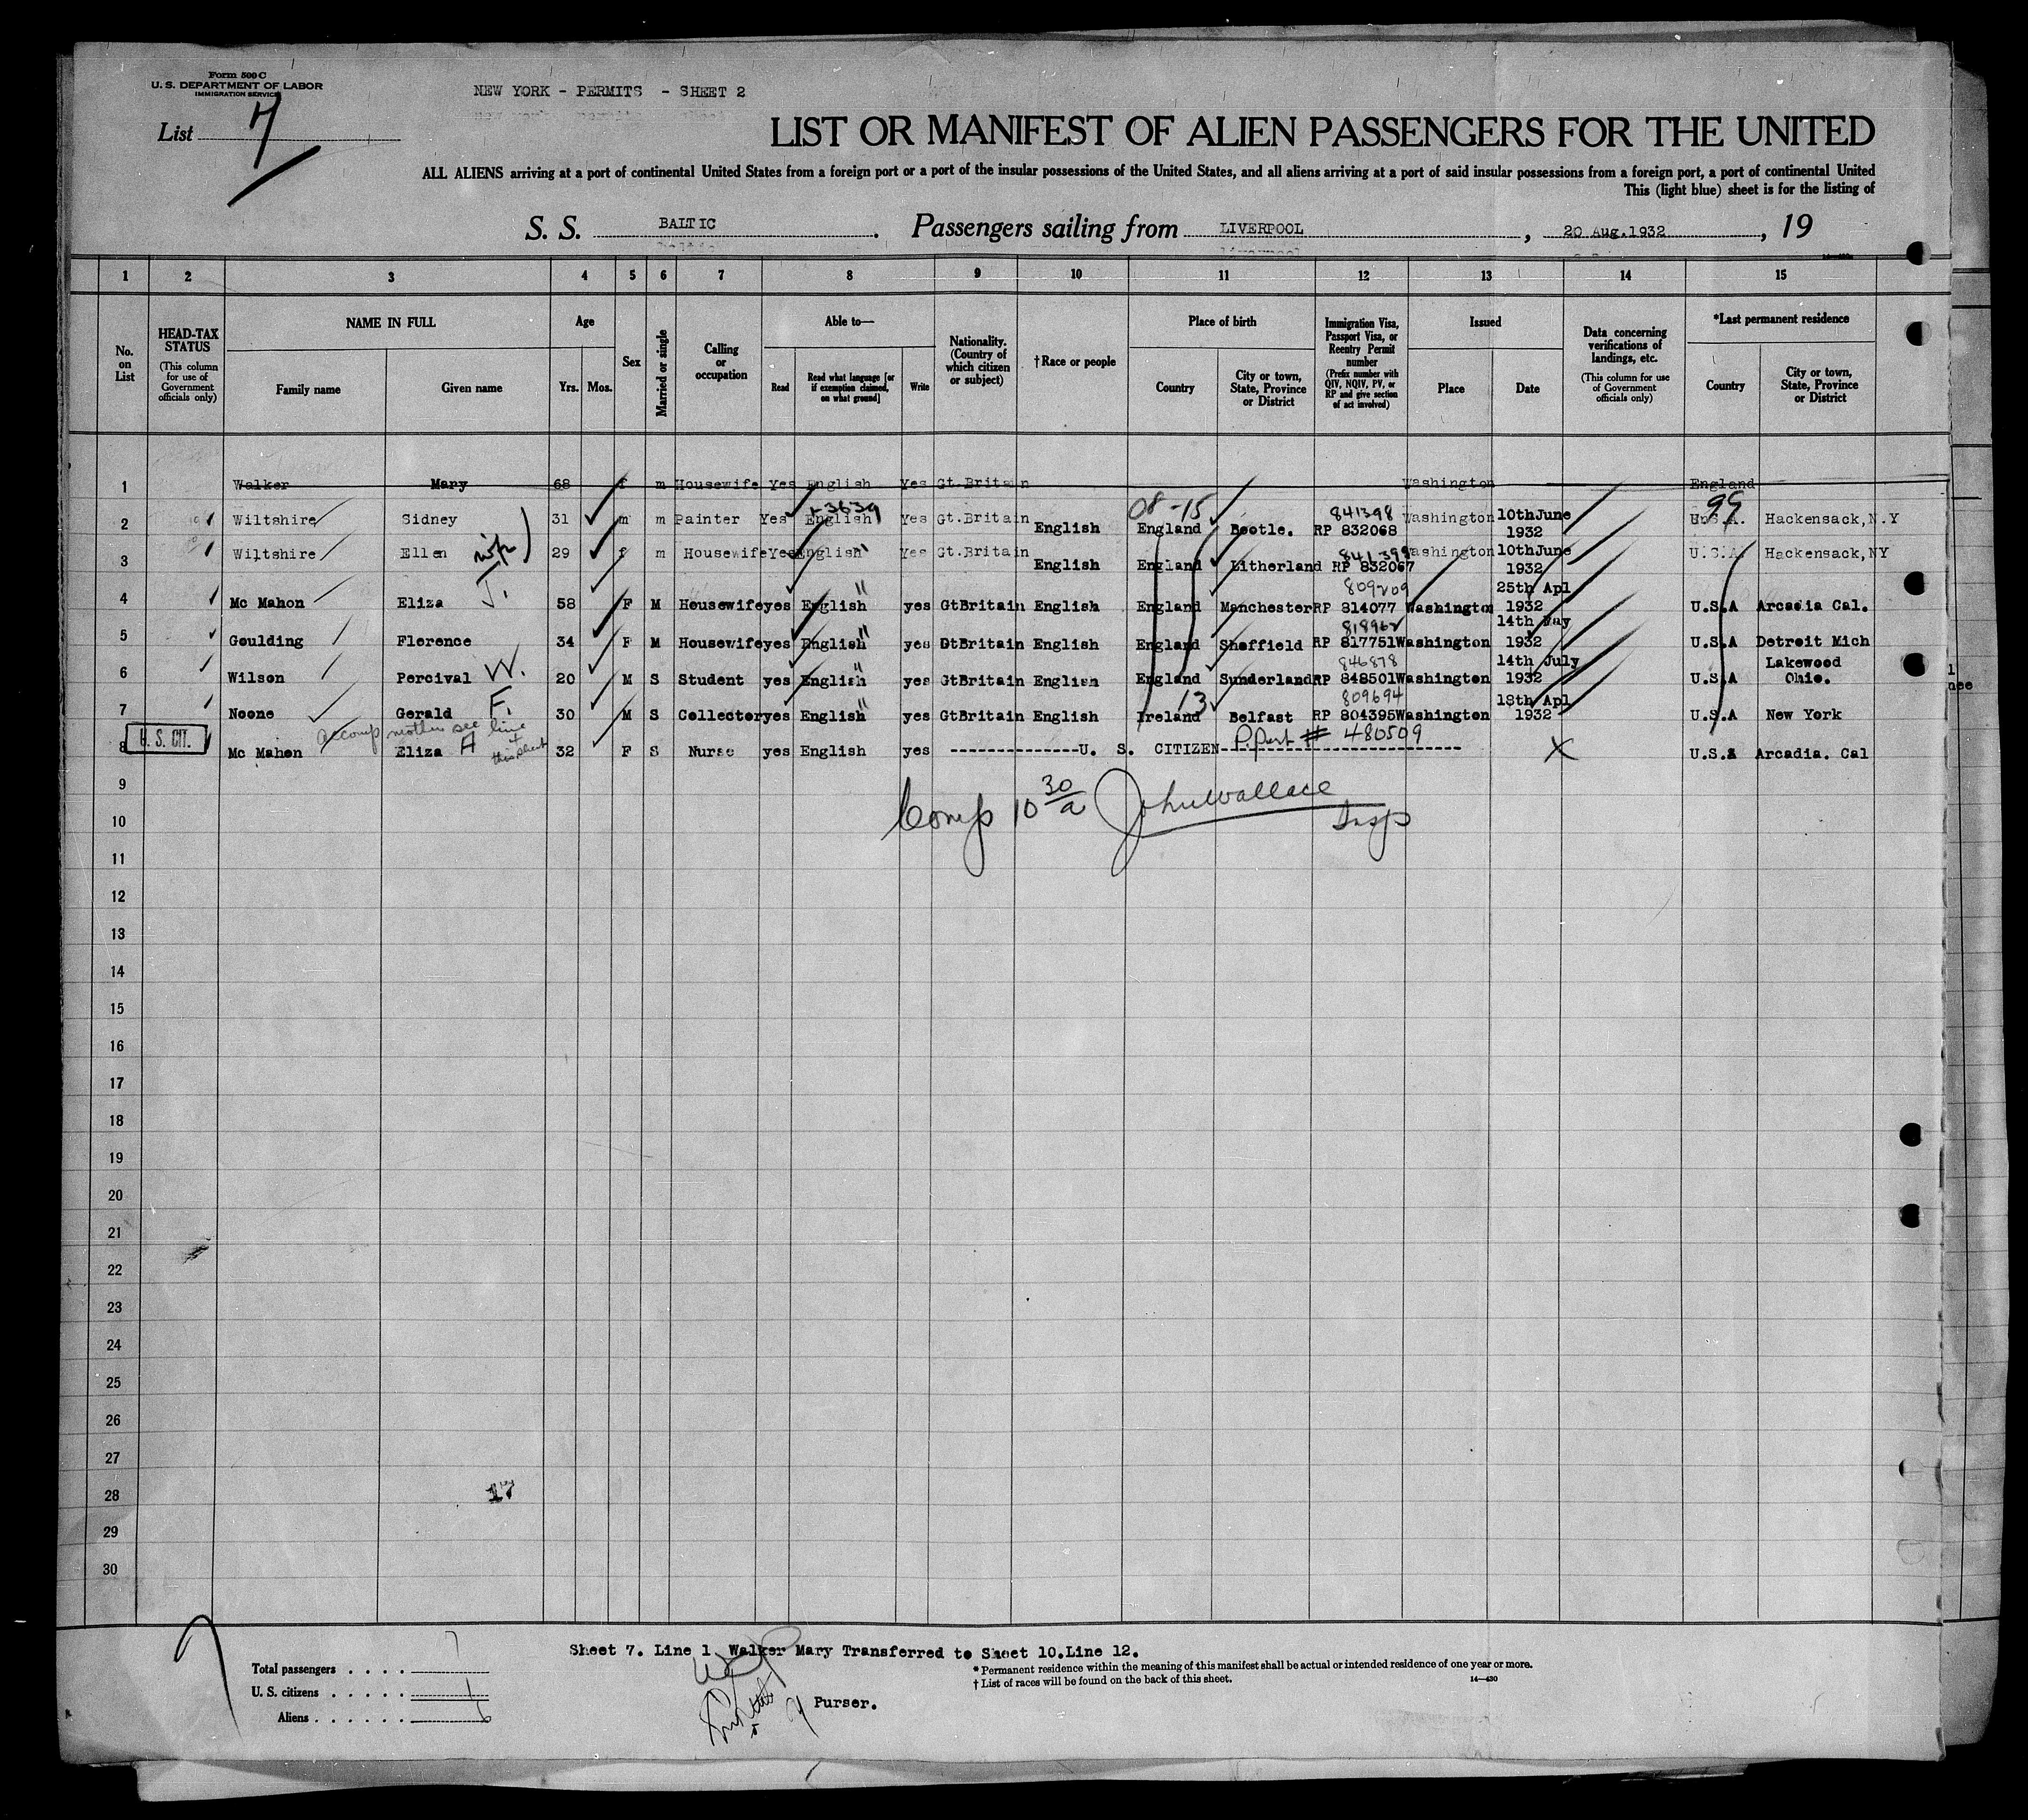 Form 500 C
U. S. DEPARTMENT OF LABOR
IMMIGRATION SERVICE
NEW YORK - PERMITS - SHEET 2
List 7
LIST OR MANIFEST OF ALIEN PASSENGERS FOR THE UNITED
ALL ALIENS arriving at a port of continental United States from a foreign port or a port of the insular possessions of the United States, and all aliens arriving at a port of said insular possessions from a foreign port, a port of continental United
This (light blue) sheet is for the listing of
S. S. BALTIC. Passengers sailing from LIVERPOOL, 20 Aug.1932, 19
1 2 3 4 5 6 7 8 9 10 11 12 13 14 15
No. on List
HEAD-TAX STATUS (This column for use of Government officials only)
NAME IN FULL
Family name Given name
Age
Yrs. Mos.
Sex
Married or single
Calling or occupation
Able to—
Read Read what language [or if exemption claimed, on what ground] Write
Nationality. (Country of which citizen or subject)
†Race or people
Place of birth
Country City or town, State, Province or District
Immigration Visa, Passport Visa, or Reentry Permit number (Prefix number with QIV, NQIV, PV, or RP and give section of act involved)
Issued
Place Date
Data concerning verifications of landings, etc. (This column for use of Government officials only)
*Last permanent residence
Country City or town, State, Province or District
1 Walker Mary 68 f m Housewife Yes English Yes Gt.Britain Washington England
08-15 841398 99
2 Wiltshire Sidney 31 m m Painter Yes English Yes Gt.Britain English England Bootle. RP 832068 Washington 10thJune 1932 U.S.A. Hackensack,N.Y
841399
3 Wiltshire Ellen wife 29 f m Housewife Yes English Yes Gt.Britain English England Litherland RP 832067 Washington 10thJune 1932 U.S.A. Hackensack,NY
809209
4 Mc Mahon Eliza J. 58 F M Housewife yes English " yes GtBritain English England Manchester RP 814077 Washington 25th Apl 1932 U.S.A Arcadia Cal.
818962
5 Goulding Florence 34 F M Housewife yes English " yes GtBritain English England Sheffield RP 817751 Washington 14th May 1932 U.S.A Detroit Mich
846878
6 Wilson Percival W. 20 M S Student yes English " yes GtBritain English England Sunderland RP 848501 Washington 14th July 1932 U.S.A Lakewood Ohio.
13 809694
7 Noone Gerald F. 30 M S Collector yes English " yes GtBritain English Ireland Belfast RP 804395 Washington 18th Apl 1932 U.S.A New York
accomp mother see line 4 this sheet
U. S. CIT.
P.Port # 480509
8 Mc Mahon Eliza A 32 F S Nurse yes English yes ---------------U. S. CITIZEN---------------------------- X U.S.A Arcadia. Cal
9
Comp 10 30/a John Wallace
Insp
10
11
12
13
14
15
16
17
18
19
20
21
22
23
24
25
26
27
28
17
29
30
Sheet 7. Line 1 Walker Mary Transferred to Sheet 10.Line 12.
Total passengers . . . . 7
U. S. citizens . . . . . 1
Aliens . . . . . . 6
Purser.
* Permanent residence within the meaning of this manifest shall be actual or intended residence of one year or more.
† List of races will be found on the back of this sheet.
14—430